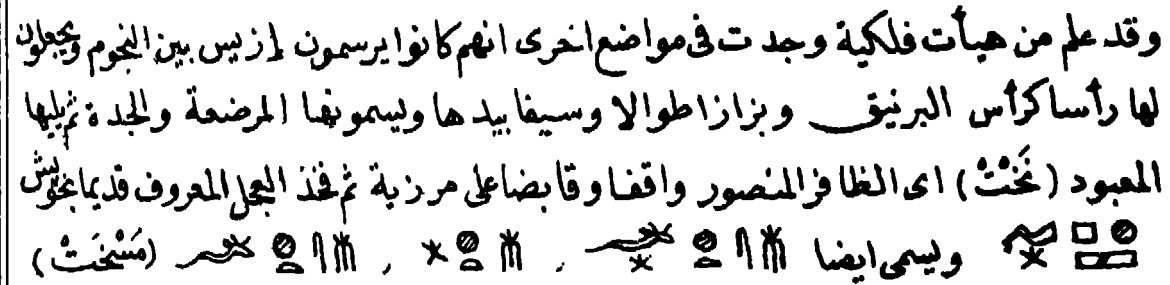 وقد علم من هيأت فلكية وجدت فى مواضع اخرى انهم كانوا يرسمون لازيس بين النجوم ويجعلون
لها رأسا كرأس البرنيق وبزازا طوالا وسيفا بيدها ويسمونها المرضعة والجدة ثم يليها
المعبود (نَخْتْ) اى الظافر المنصور واقفا وقابضا على مرزبة ثم فخذ العجل المعروف قديما
ويسمى ايضا , , (مَسْخَتْ)